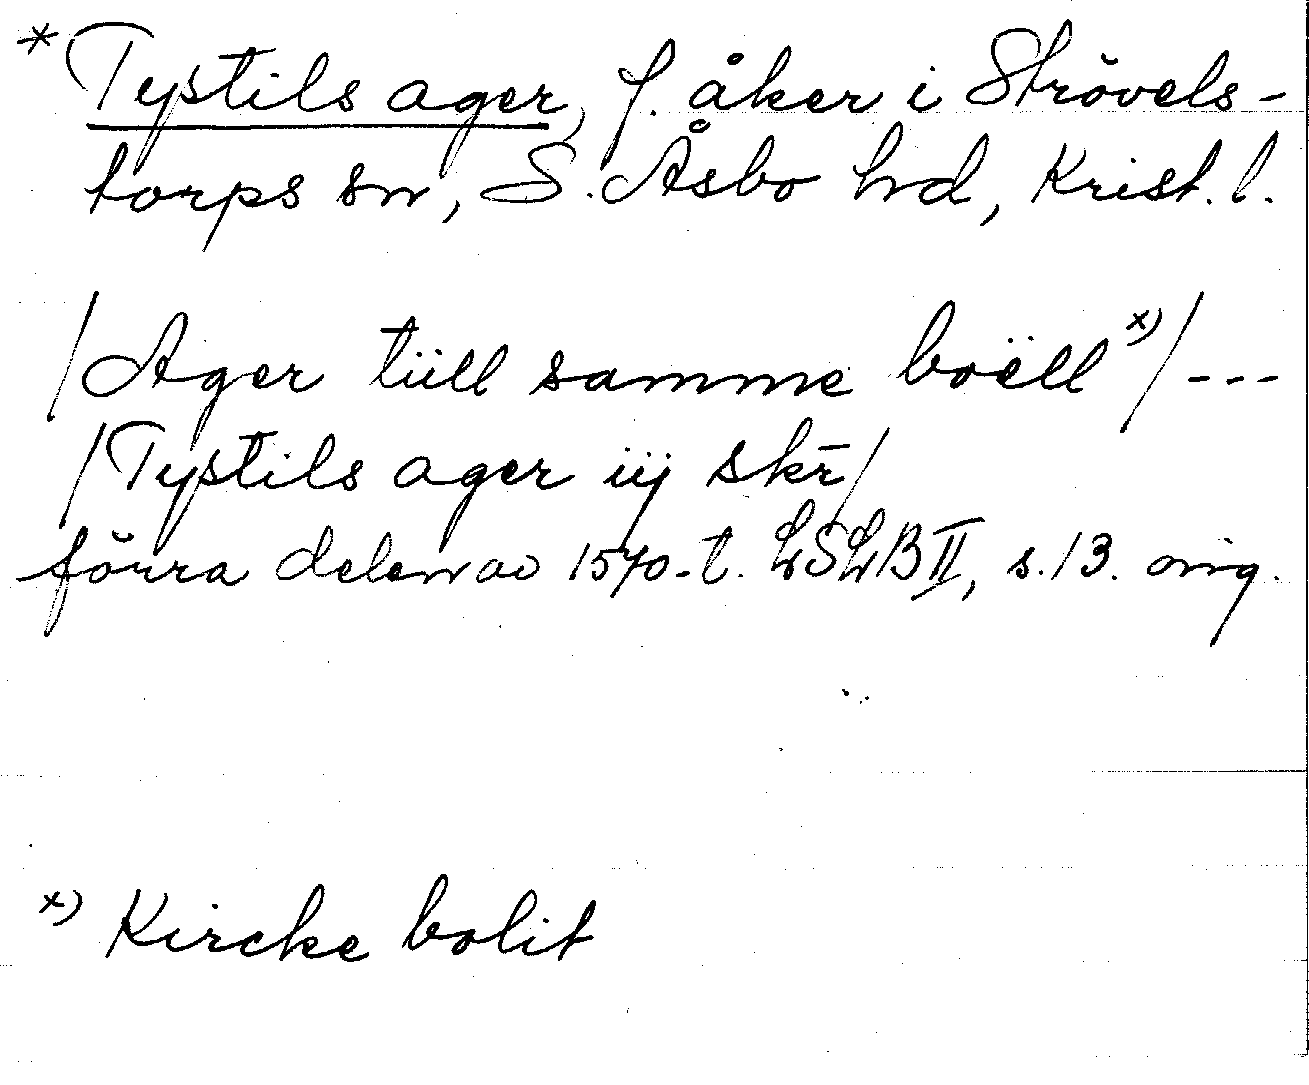 * Tystils ager, f. åker i Strövels-
torps sn, S. Åsbo hd, Krist. l.
/Ager tüll samme boëll x)/ ---
/Tystils ager iij skr̄/
förra delen av 1570-t. LSLB II, s. 13. orig.
x) Kircke bolit